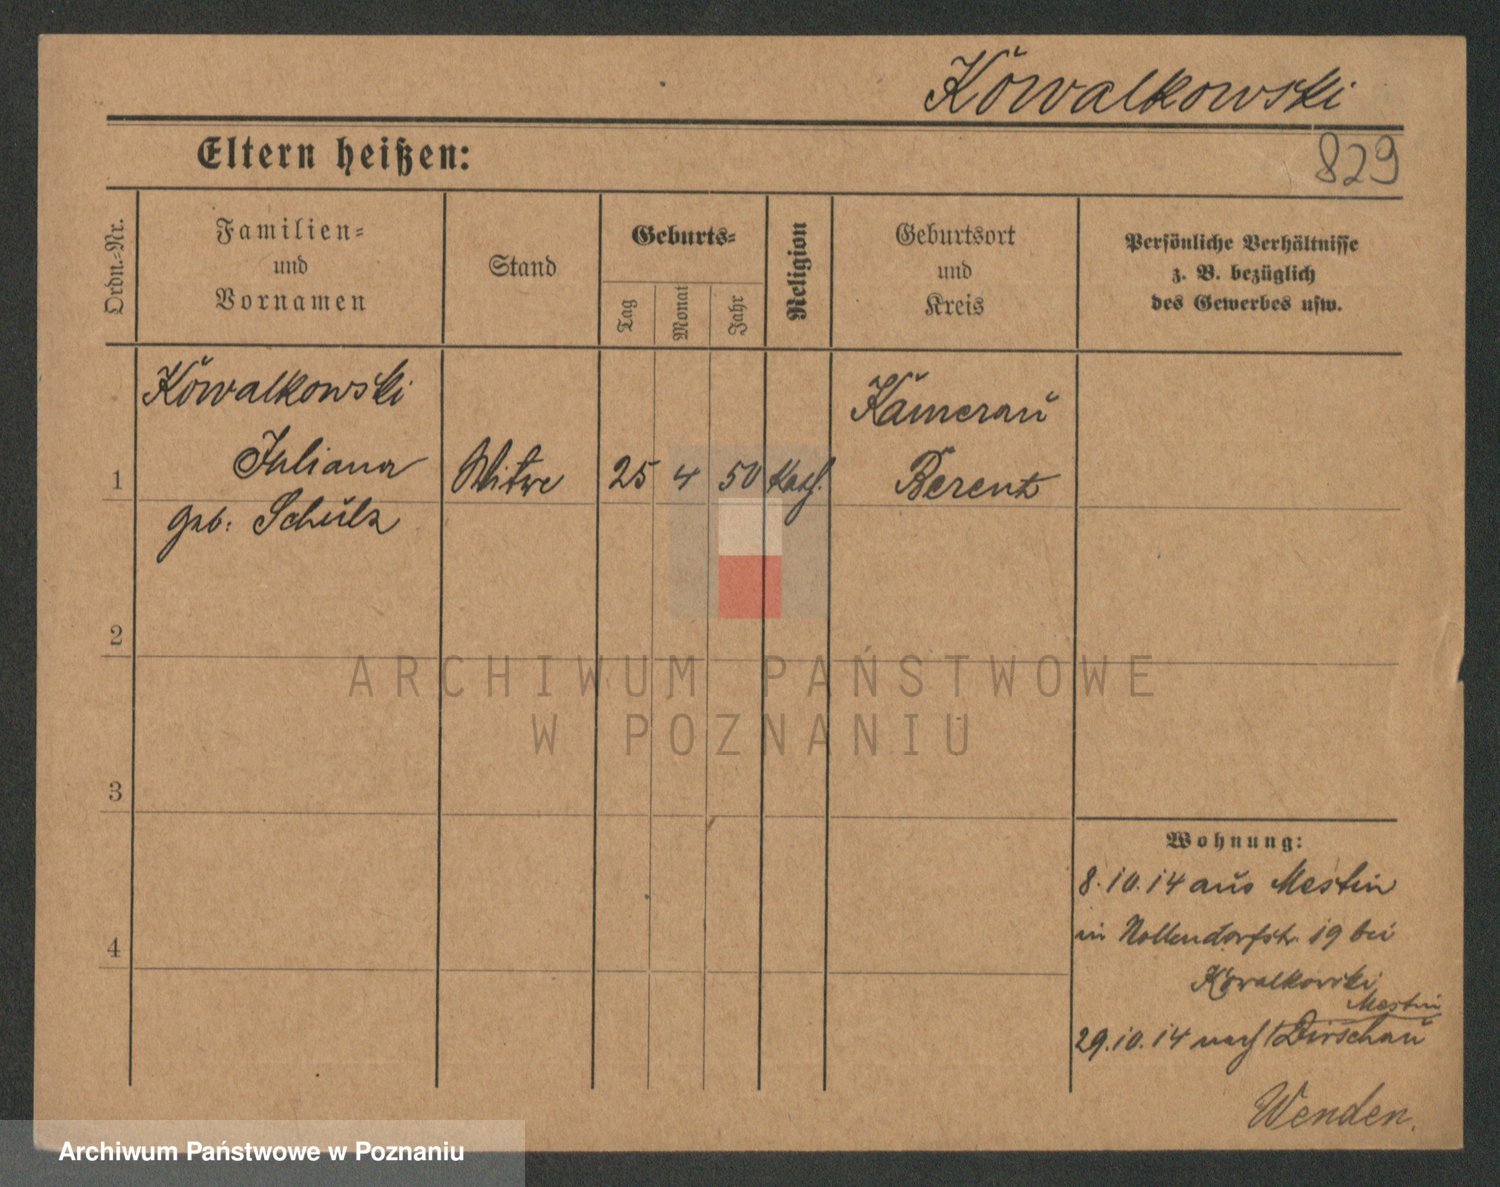 Kowalkowski
Eltern heißen:
829
Ordn.-Nr.
Familien-
und
Vornamen
Stand
Geburts-
Tag
Monat
Jahr
Religion
Geburtsort
und
Kreis
Persönliche Verhältnisse
z. B. bezüglich
des Gewerbes usw.
Kowalkowski
Juliana
geb: Schulz
1
Witwe
25 4 50 kath.
Kamerau
Berent
2
3
4
Wohnung:
8.10.14 aus Mestin
in Nollendorfstr. 19 bei
Kowalkowski
Mestin
29.10.14 nach Dirschau
Wenden.
ARCHIWUM PAŃSTWOWE
W POZNANIU
Archiwum Państwowe w Poznaniu